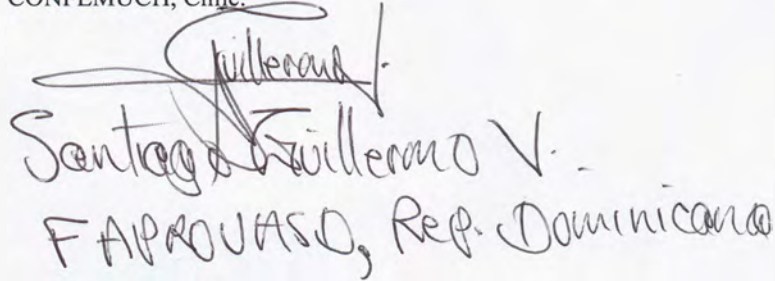 CONFEMUCH, Chile.
Guillermo V.
Santiago Guillermo V.
FAPROUASD, Rep. Dominicana